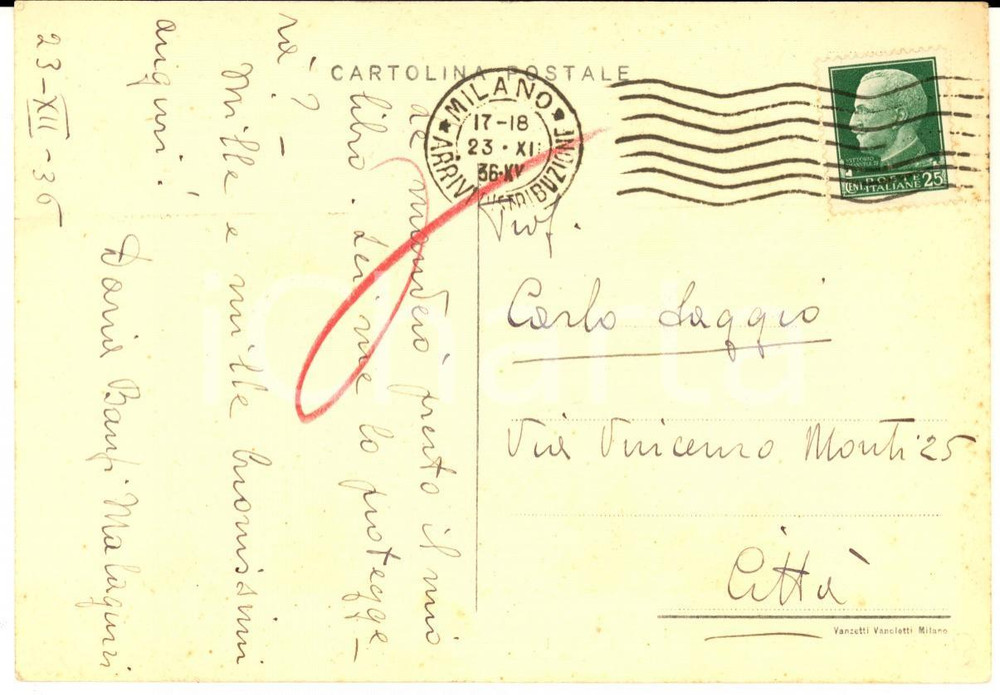 CARTOLINA POSTALE
MILANO
17-18
23 · XII
36·XV
ARRIVI
DISTRIBUZIONE
VITTORIO
EMANUELE III
POSTE
ITALIANE
CENT 25
Le manderò presto il mio
libro. Lei me lo protegge-
rà? -
Mille e mille buonissimi
auguri!
Daria Banfi Malaguzzi
23-XII-36
Prof.
Carlo Saggio
Via Vincenzo Monti 25
Città
Vanzetti Vanoletti Milano
iCharta